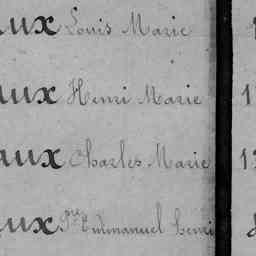 aux Louis Marie 1
aux Henri Marie 1
aux Charles Marie 1
aux Pre Emmanuel Henri